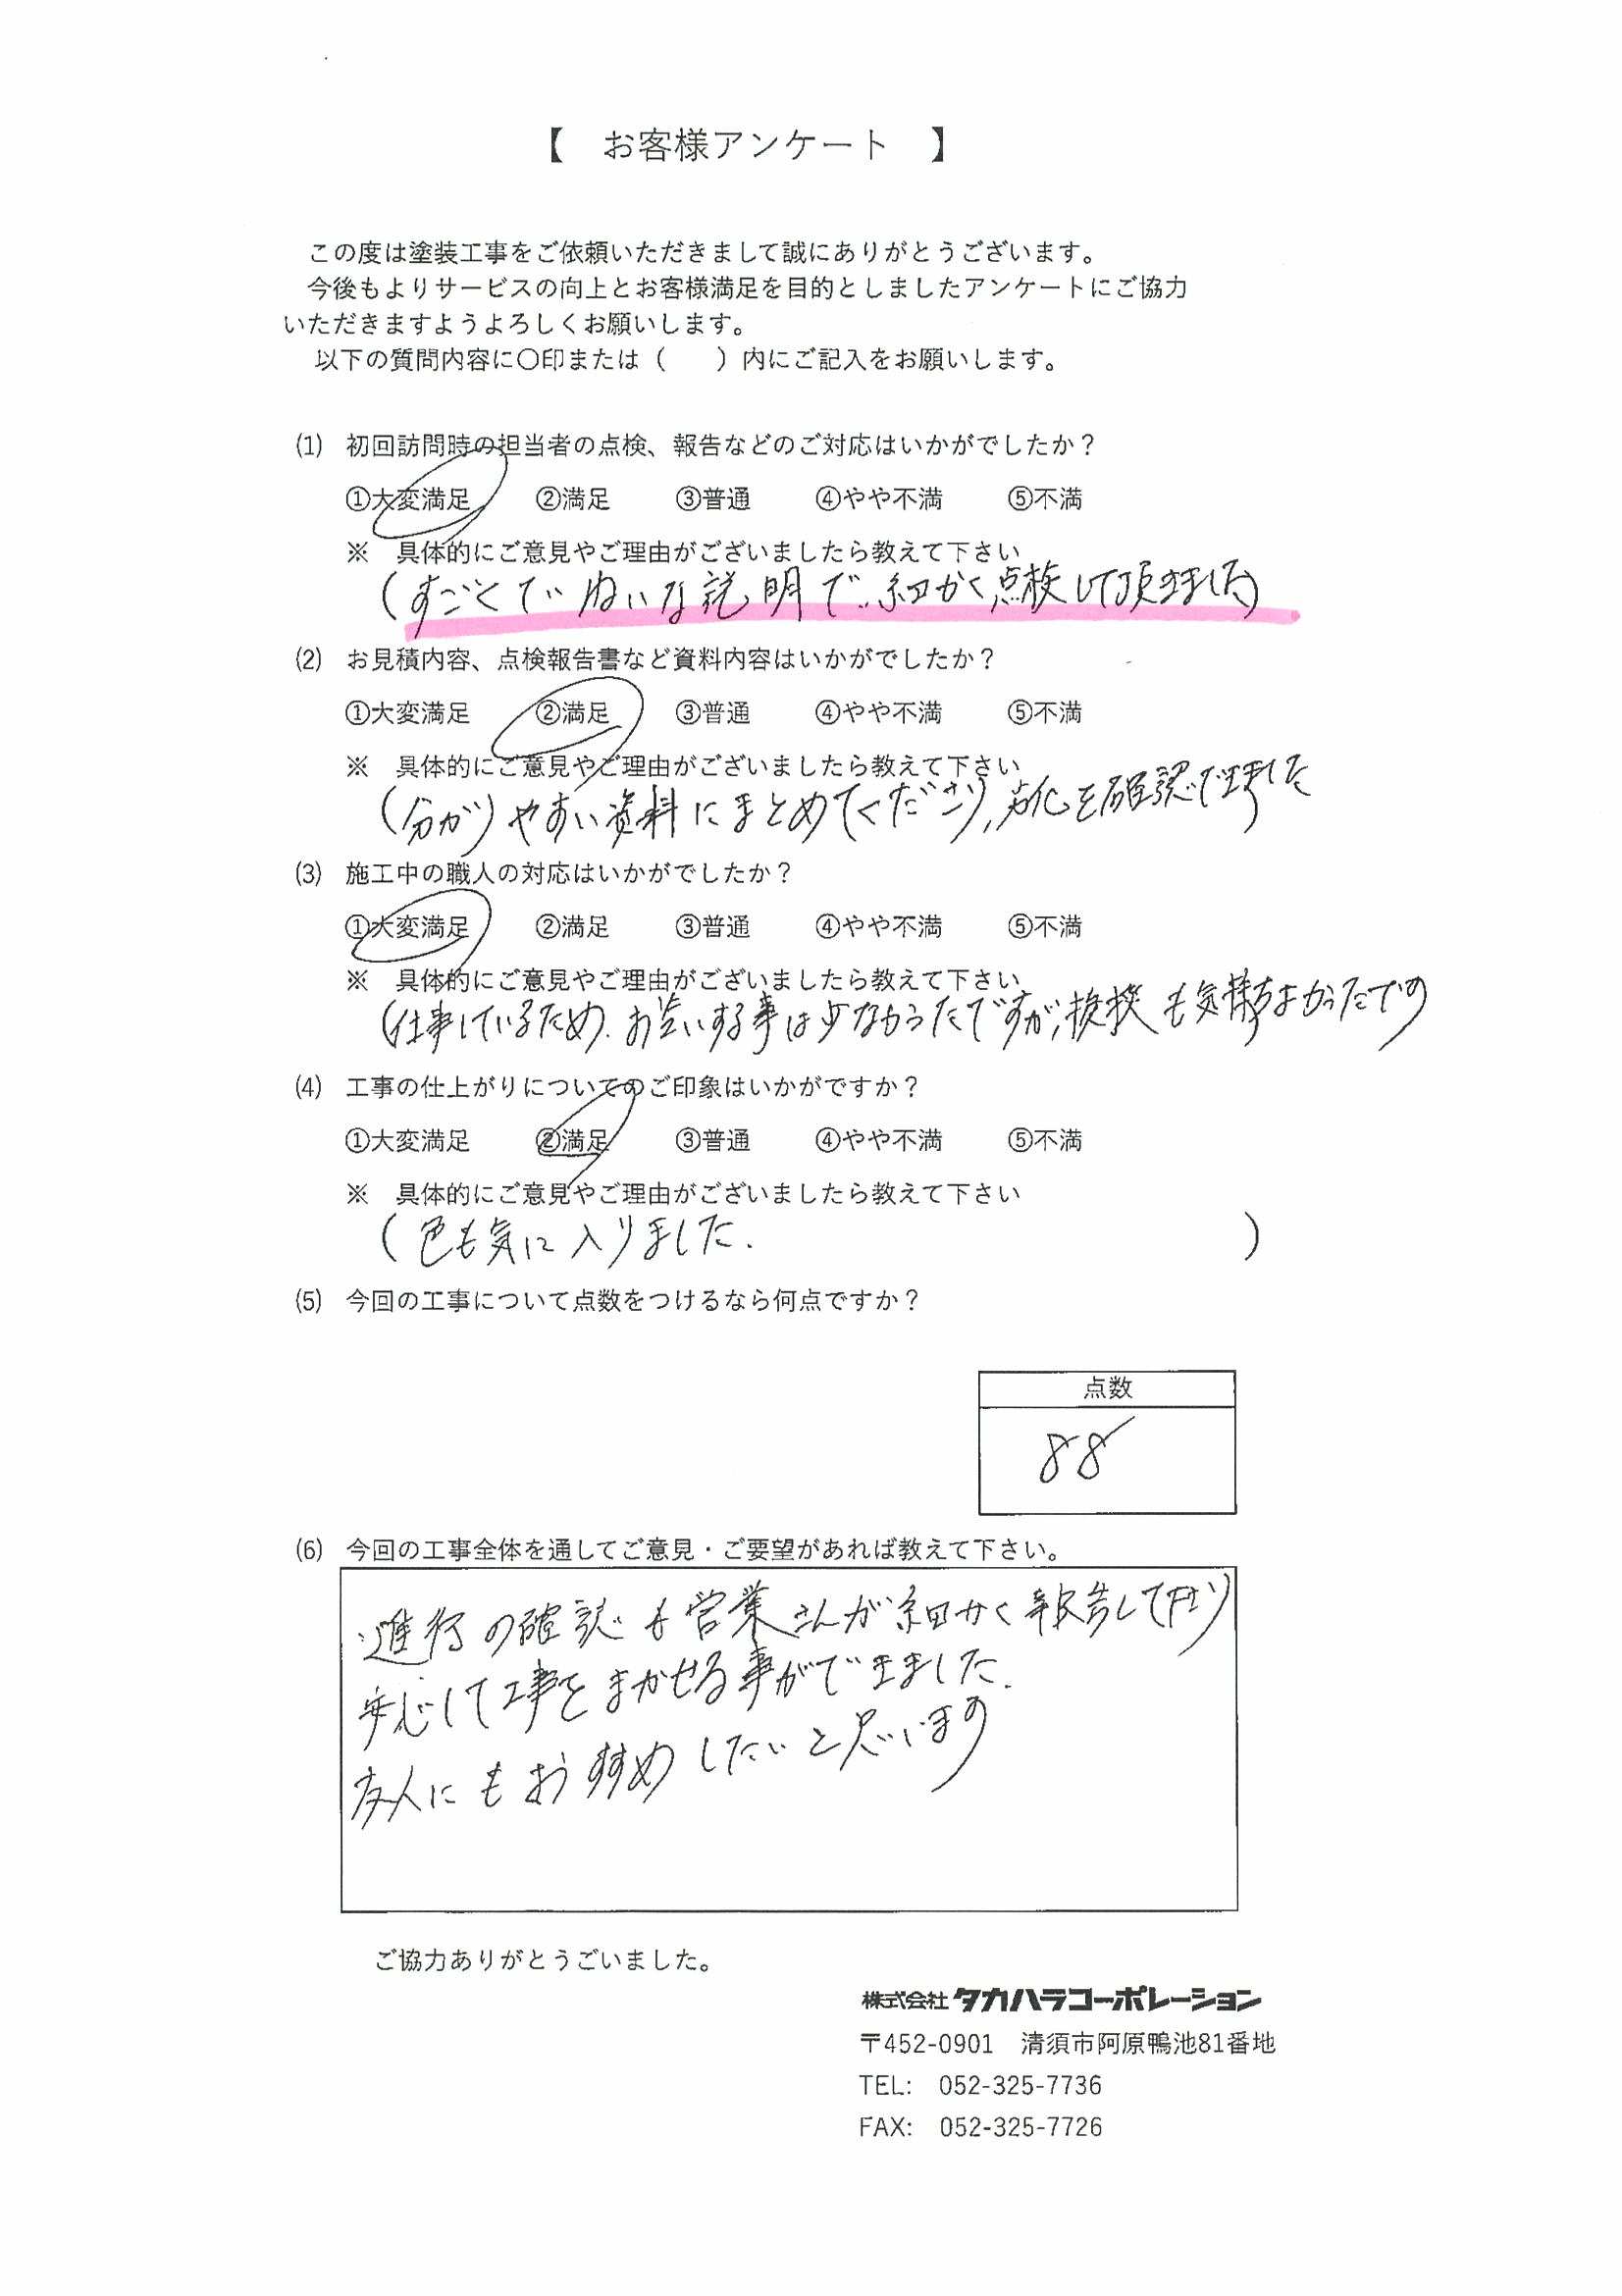 【　お客様アンケート　】
この度は塗装工事をご依頼いただきまして誠にありがとうございます。
今後もよりサービスの向上とお客様満足を目的としましたアンケートにご協力
いただきますようよろしくお願いします。
以下の質問内容に〇印または（　　）内にご記入をお願いします。
(1) 初回訪問時の担当者の点検、報告などのご対応はいかがでしたか？
①大変満足　②満足　③普通　④やや不満　⑤不満
※　具体的にご意見やご理由がございましたら教えて下さい
(すごくていねいな説明で、細かく点検して頂きました)
(2) お見積内容、点検報告書など資料内容はいかがでしたか？
①大変満足　②満足　③普通　④やや不満　⑤不満
※　具体的にご意見やご理由がございましたら教えて下さい
(分かりやすい資料にまとめてくださり、劣化を確認できました
(3) 施工中の職人の対応はいかがでしたか？
①大変満足　②満足　③普通　④やや不満　⑤不満
※　具体的にご意見やご理由がございましたら教えて下さい
(仕事しているため、お会いする事は少なかったですが、挨拶も気持ちよかったです
(4) 工事の仕上がりについてのご印象はいかがですか？
①大変満足　②満足　③普通　④やや不満　⑤不満
※　具体的にご意見やご理由がございましたら教えて下さい
(色も気に入りました.)
(5) 今回の工事について点数をつけるなら何点ですか？
点数
88
(6) 今回の工事全体を通してご意見・ご要望があれば教えて下さい。
進行の確認も営業さんが細かく報告して下さり
安心して工事をまかせる事ができました.
友人にもおすすめしたいと思います
ご協力ありがとうごいました。
株式会社タカハラコーポレーション
〒452-0901　清須市阿原鴨池81番地
TEL:　052-325-7736
FAX:　052-325-7726